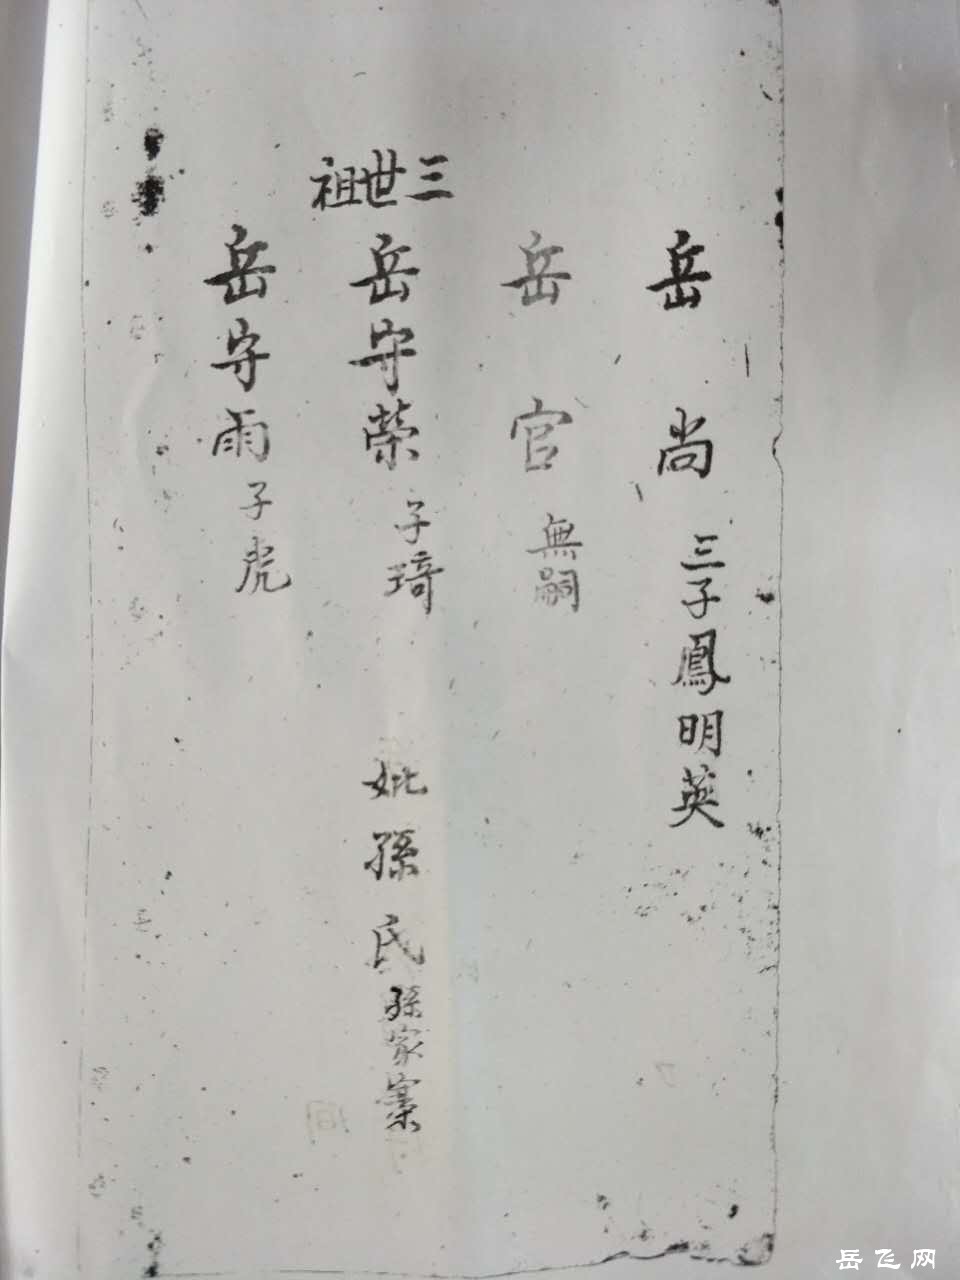 岳尚 三子鳳明英
岳官 無嗣
三世祖
岳守荣 子琦 妣孫氏 孫家寨
岳守雨 子虎
岳飞网